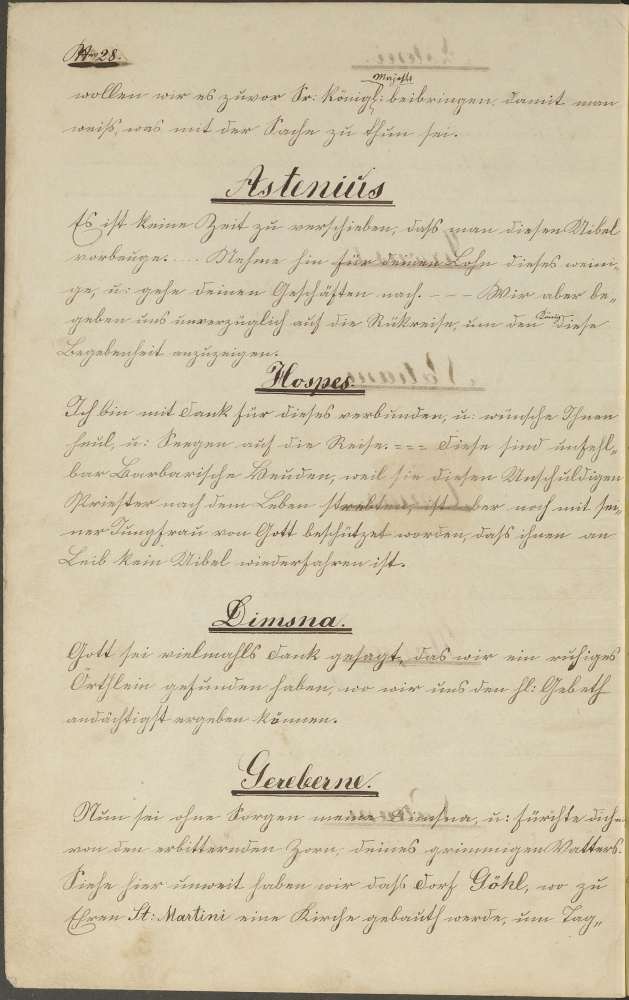 Nro 28.
wollen wir es zuvor Sr: Königl: Majestt beibringen, damit man
weiß, was mit der Sache zu thun sei.
Astenius
Es ist keine Zeit zu verschieben, daß man diesen Uibel
vorbeuge. .... Nehme hin für deinen Lohn dieses weni-
ge, u: gehe deinen Geschäften nach. - - - Wir aber be„
geben uns unverzüglich auf die Rükreise, um den König diese
Begebenheit anzuzeigen.
Hospes.
Ich bin mit Dank für dieses verbunden, u: wünsche Ihnen
Heül, u: Seegen auf die Reise. = = = Diese sind unfehl„
bar Barbarische Heuden, weil sie diesen Unschuldigen
Priester nach dem Leben strebten, ist aber noch mit sei„
ner Jungfrau von Gott beschützet worden, daß ihnen an
Leib kein Uibel wiederfahren ist.
Dimsna.
Gott sei vielmahls Dank gesagt, das wir ein ruhiges
Örthlein gefunden haben, wo wir uns den hl: Gebeth
andächtigst ergeben können.
Gereberne.
Nun sei ohne Sorgen meine Dimsna, u: fürchte dich
von den erbitternden Zorn, deines grimmigen Vatters.
Siehe hier unweit haben wir daß Dorf Göhl, wo zu
Ehren St: Martini eine Kirche gebauth werde, um Tag„